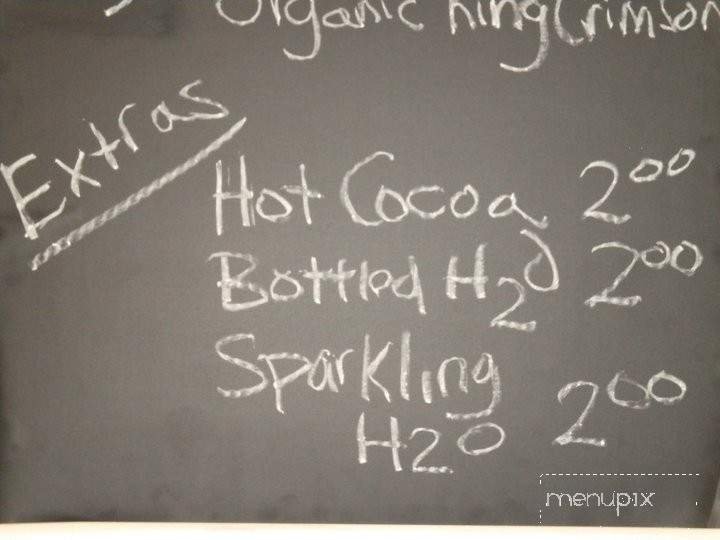 Organic King Crimson
Extras
Hot Cocoa 2⁰⁰
Bottled H₂O 2⁰⁰
Sparkling
H2O 2⁰⁰
menupix